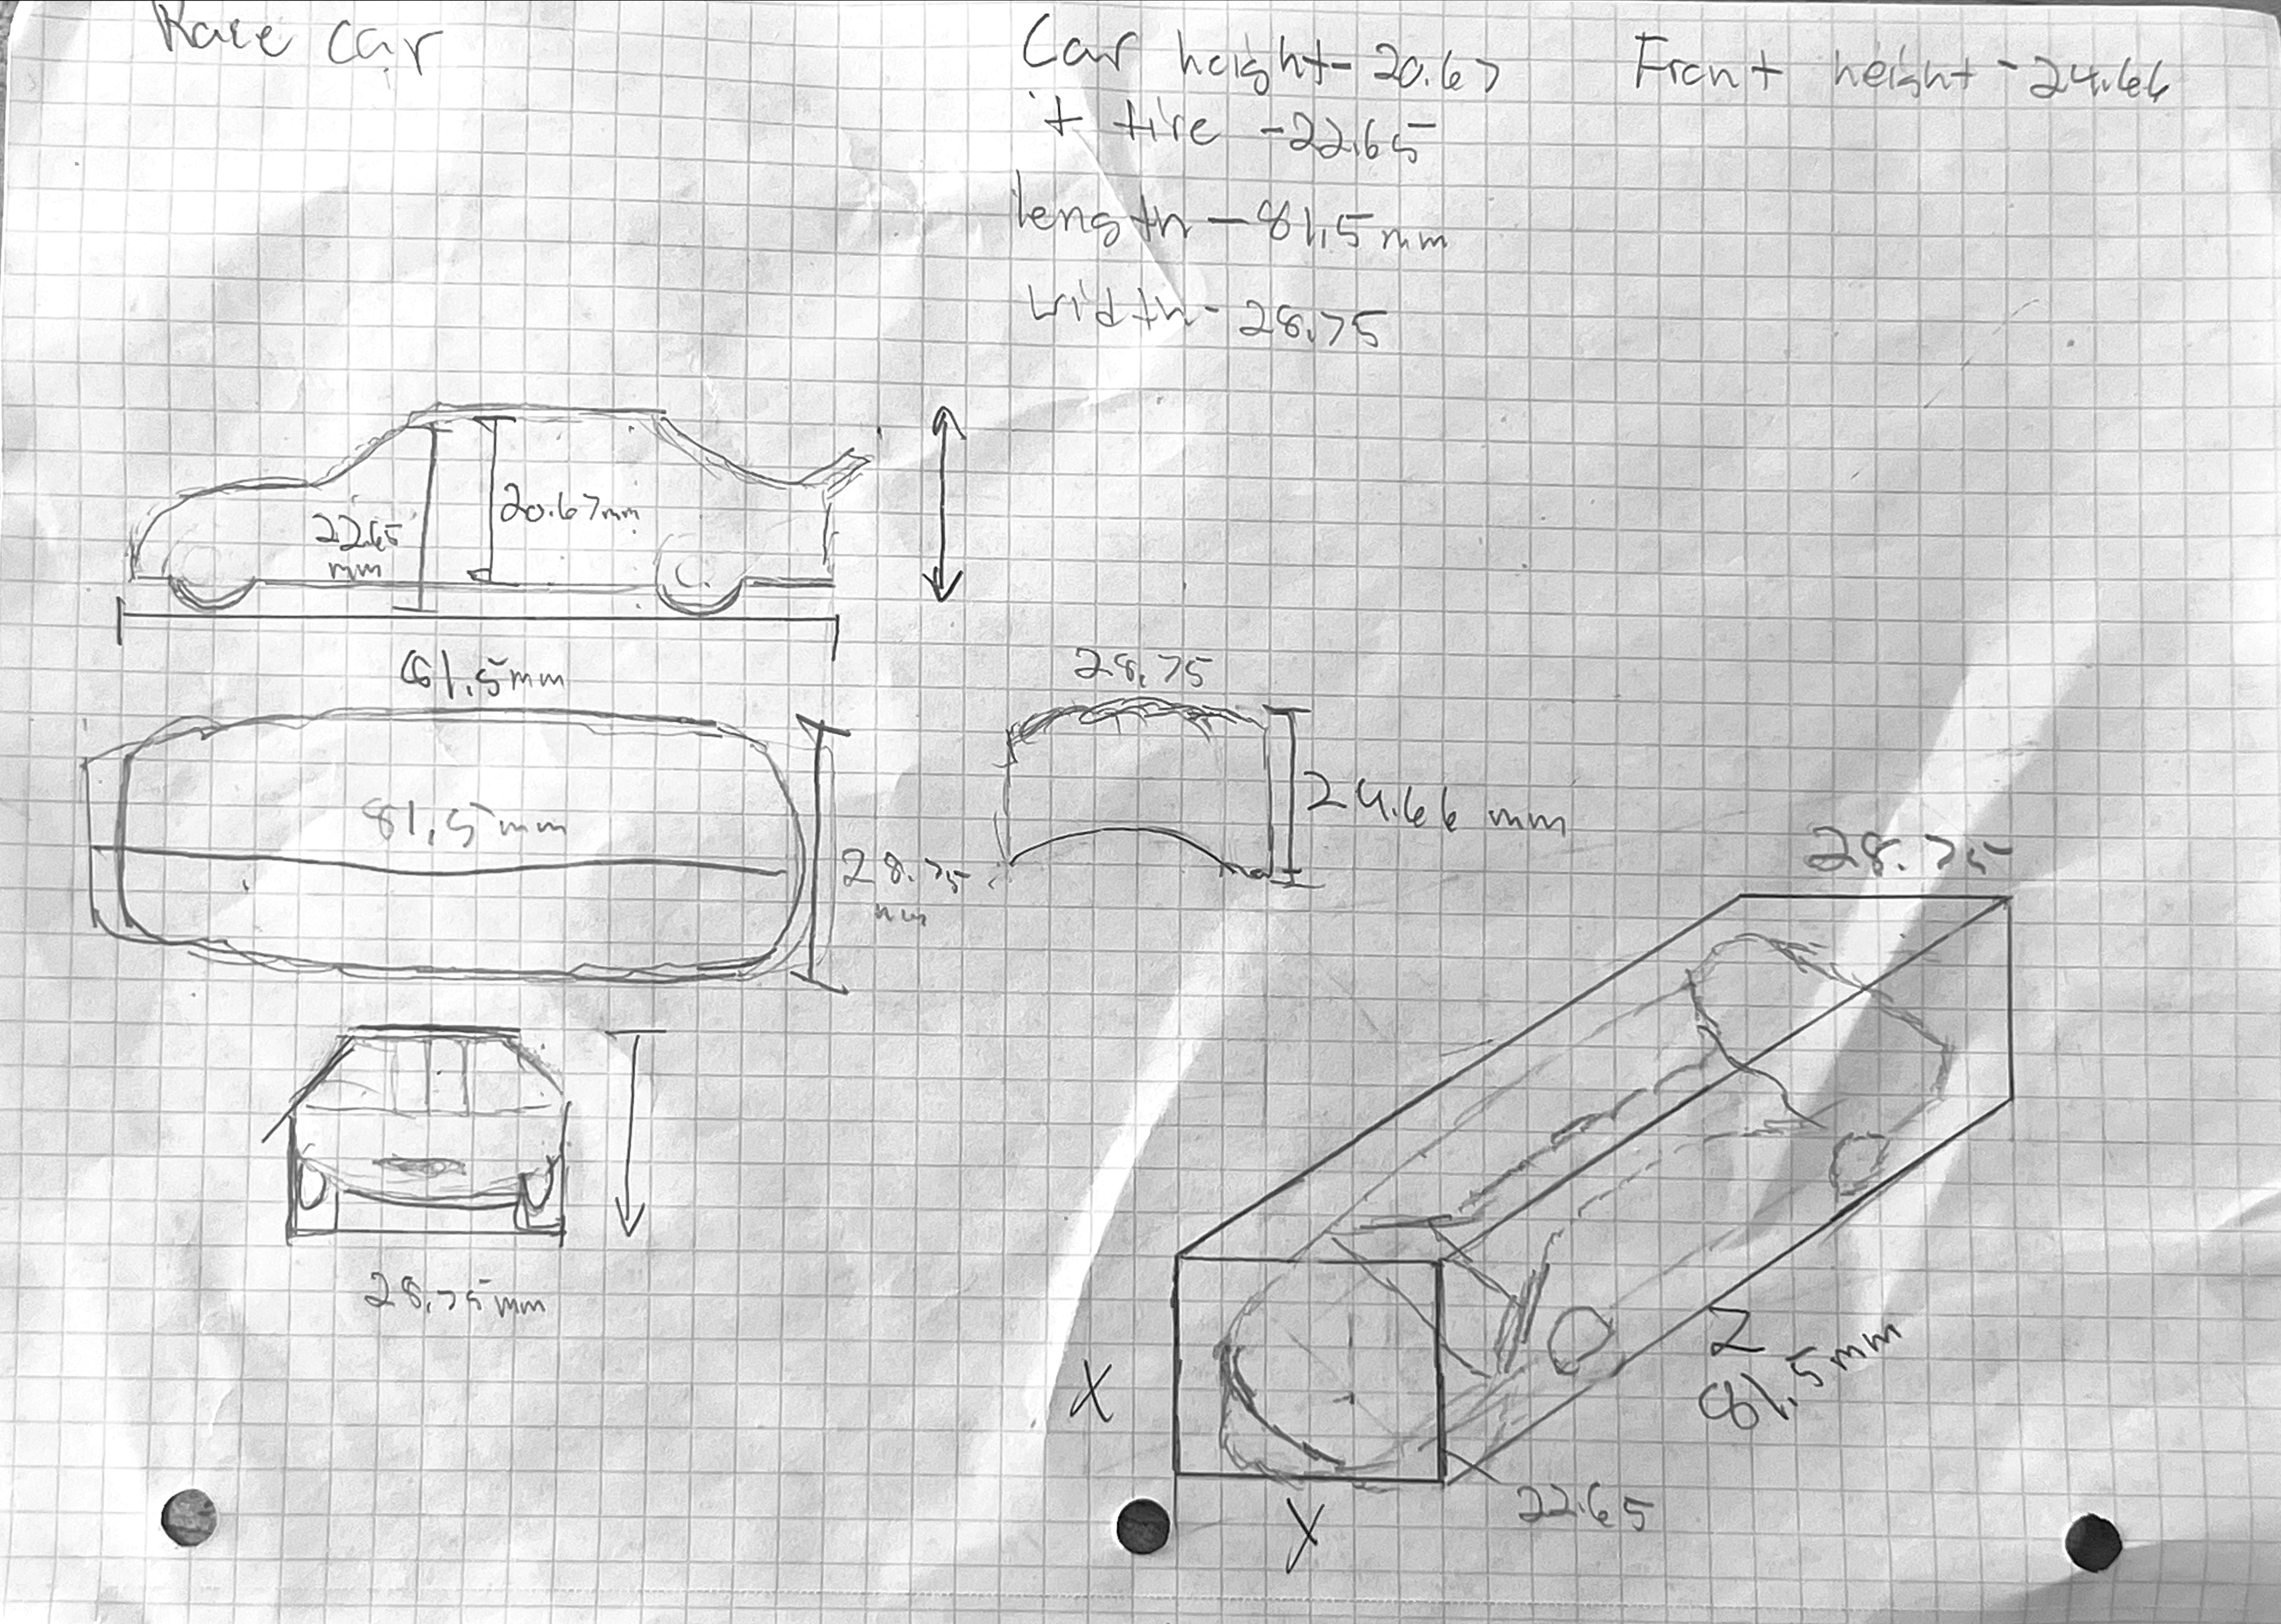 Race car
Car height - 20.67
+ tire - 22.65
length - 81.5mm
width - 28.75
Front height - 24.66
22.65
mm
20.67mm
81.5mm
81.5mm
28.75
mm
28.75
24.66 mm
28.75mm
28.75
X
Y
Z
81.5mm
22.65